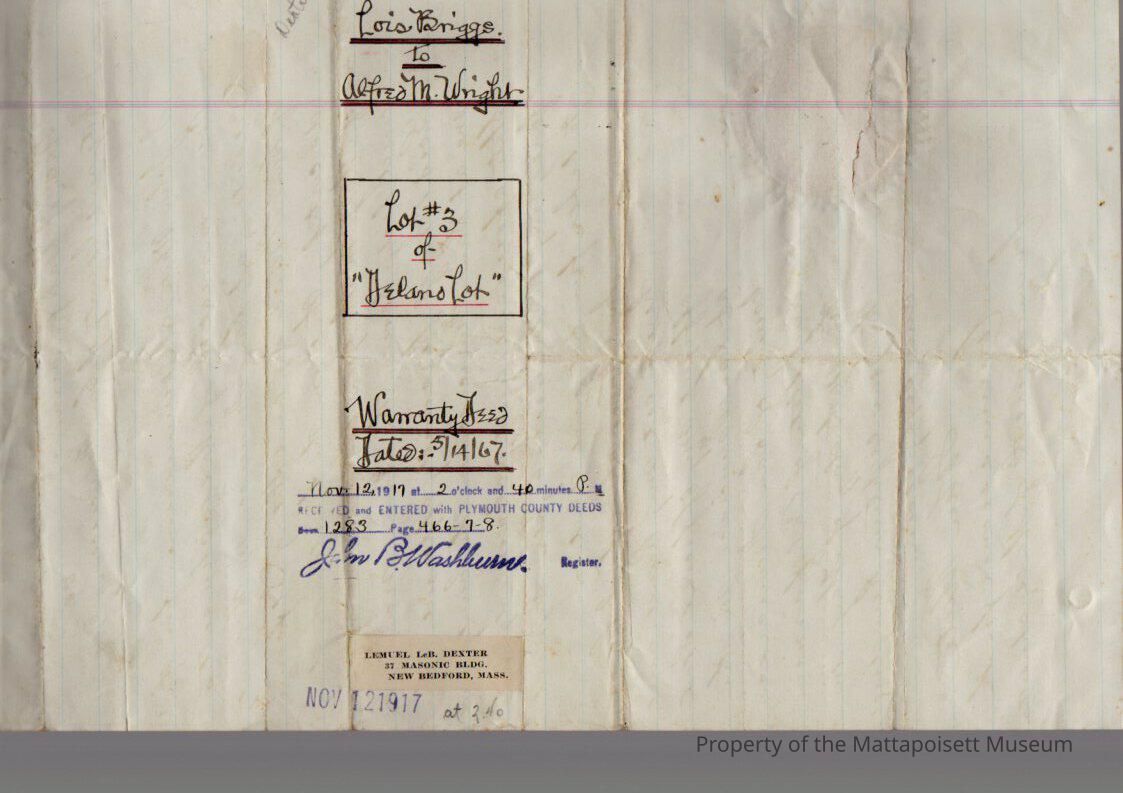 Lois Briggs.
to
Alfred M. Wright
Lot #3
of
"Delano Lot"
Warranty Deed
Dated:- 5/14/67.
Nov. 12, 1917 at 2 o'clock and 40 minutes P. M
RECEIVED and ENTERED with PLYMOUTH COUNTY DEEDS
Book 1283 Page 466-7-8.
John B. Washburn.
Register.
LEMUEL LeB. DEXTER
37 MASONIC BLDG.
NEW BEDFORD, MASS.
NOV 12 1917
at 2.40
Property of the Mattapoisett Museum